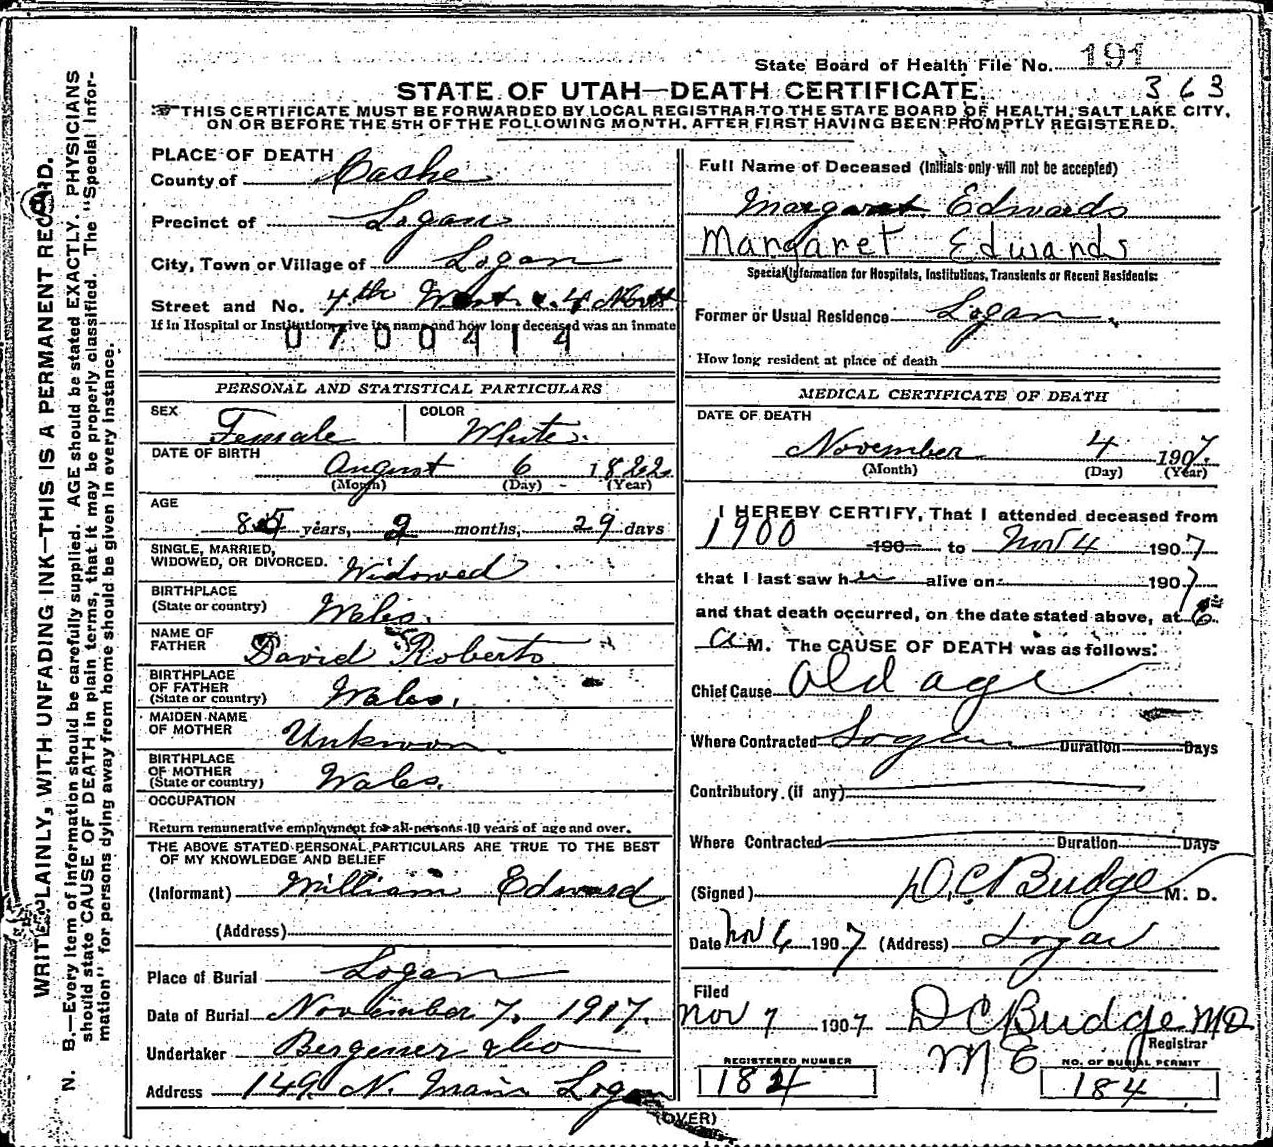 State Board of Health File No. 191
363
STATE OF UTAH—DEATH CERTIFICATE.
THIS CERTIFICATE MUST BE FORWARDED BY LOCAL REGISTRAR TO THE STATE BOARD OF HEALTH, SALT LAKE CITY,
ON OR BEFORE THE 5TH OF THE FOLLOWING MONTH, AFTER FIRST HAVING BEEN PROMPTLY REGISTERED.
WRITE PLAINLY, WITH UNFADING INK—THIS IS A PERMANENT RECORD.
N. B.—Every item of information should be carefully supplied. AGE should be stated EXACTLY. PHYSICIANS
should state CAUSE OF DEATH in plain terms, that it may be properly classified. The "Special Infor-
mation" for persons dying away from home should be given in every instance.
PLACE OF DEATH
County of Cashe
Precinct of Logan
City, Town or Village of Logan
Street and No. 4th West & 4 North
If in Hospital or Institution give its name and how long deceased was an inmate
0700414
PERSONAL AND STATISTICAL PARTICULARS
SEX Female COLOR White.
DATE OF BIRTH August 6 1822
(Month) (Day) (Year)
AGE
85 years, 2 months, 29 days
SINGLE, MARRIED,
WIDOWED, OR DIVORCED. Widowed
BIRTHPLACE
(State or country) Wales.
NAME OF
FATHER David Roberts
BIRTHPLACE
OF FATHER
(State or country) Wales.
MAIDEN NAME
OF MOTHER Unknown.
BIRTHPLACE
OF MOTHER
(State or country) Wales.
OCCUPATION
Return remunerative employment for all persons 10 years of age and over.
THE ABOVE STATED PERSONAL PARTICULARS ARE TRUE TO THE BEST
OF MY KNOWLEDGE AND BELIEF
(Informant) William Edward
(Address)
Place of Burial Logan
Date of Burial November 7, 1907.
Undertaker Bergener & Co
Address 149 N. Main Logan
Full Name of Deceased (Initials only will not be accepted)
Margaret Edwards
Margaret Edwards
Special Information for Hospitals, Institutions, Transients or Recent Residents:
Former or Usual Residence Logan.
How long resident at place of death
MEDICAL CERTIFICATE OF DEATH
DATE OF DEATH
November 4 1907.
(Month) (Day) (Year)
I HEREBY CERTIFY, That I attended deceased from
1900 190 to Nov 4 1907
that I last saw her alive on 1907
and that death occurred, on the date stated above, at 6
a M. The CAUSE OF DEATH was as follows:
Chief Cause Old age
Where Contracted Logan Duration Days
Contributory (if any)
Where Contracted Duration Days
(Signed) D.C. Budge M. D.
Date Nov 6 1907 (Address) Logan
Filed
Nov 7 1907 D C Budge MD
Registrar
M E
REGISTERED NUMBER 184
NO. OF BURIAL PERMIT 184
(OVER)